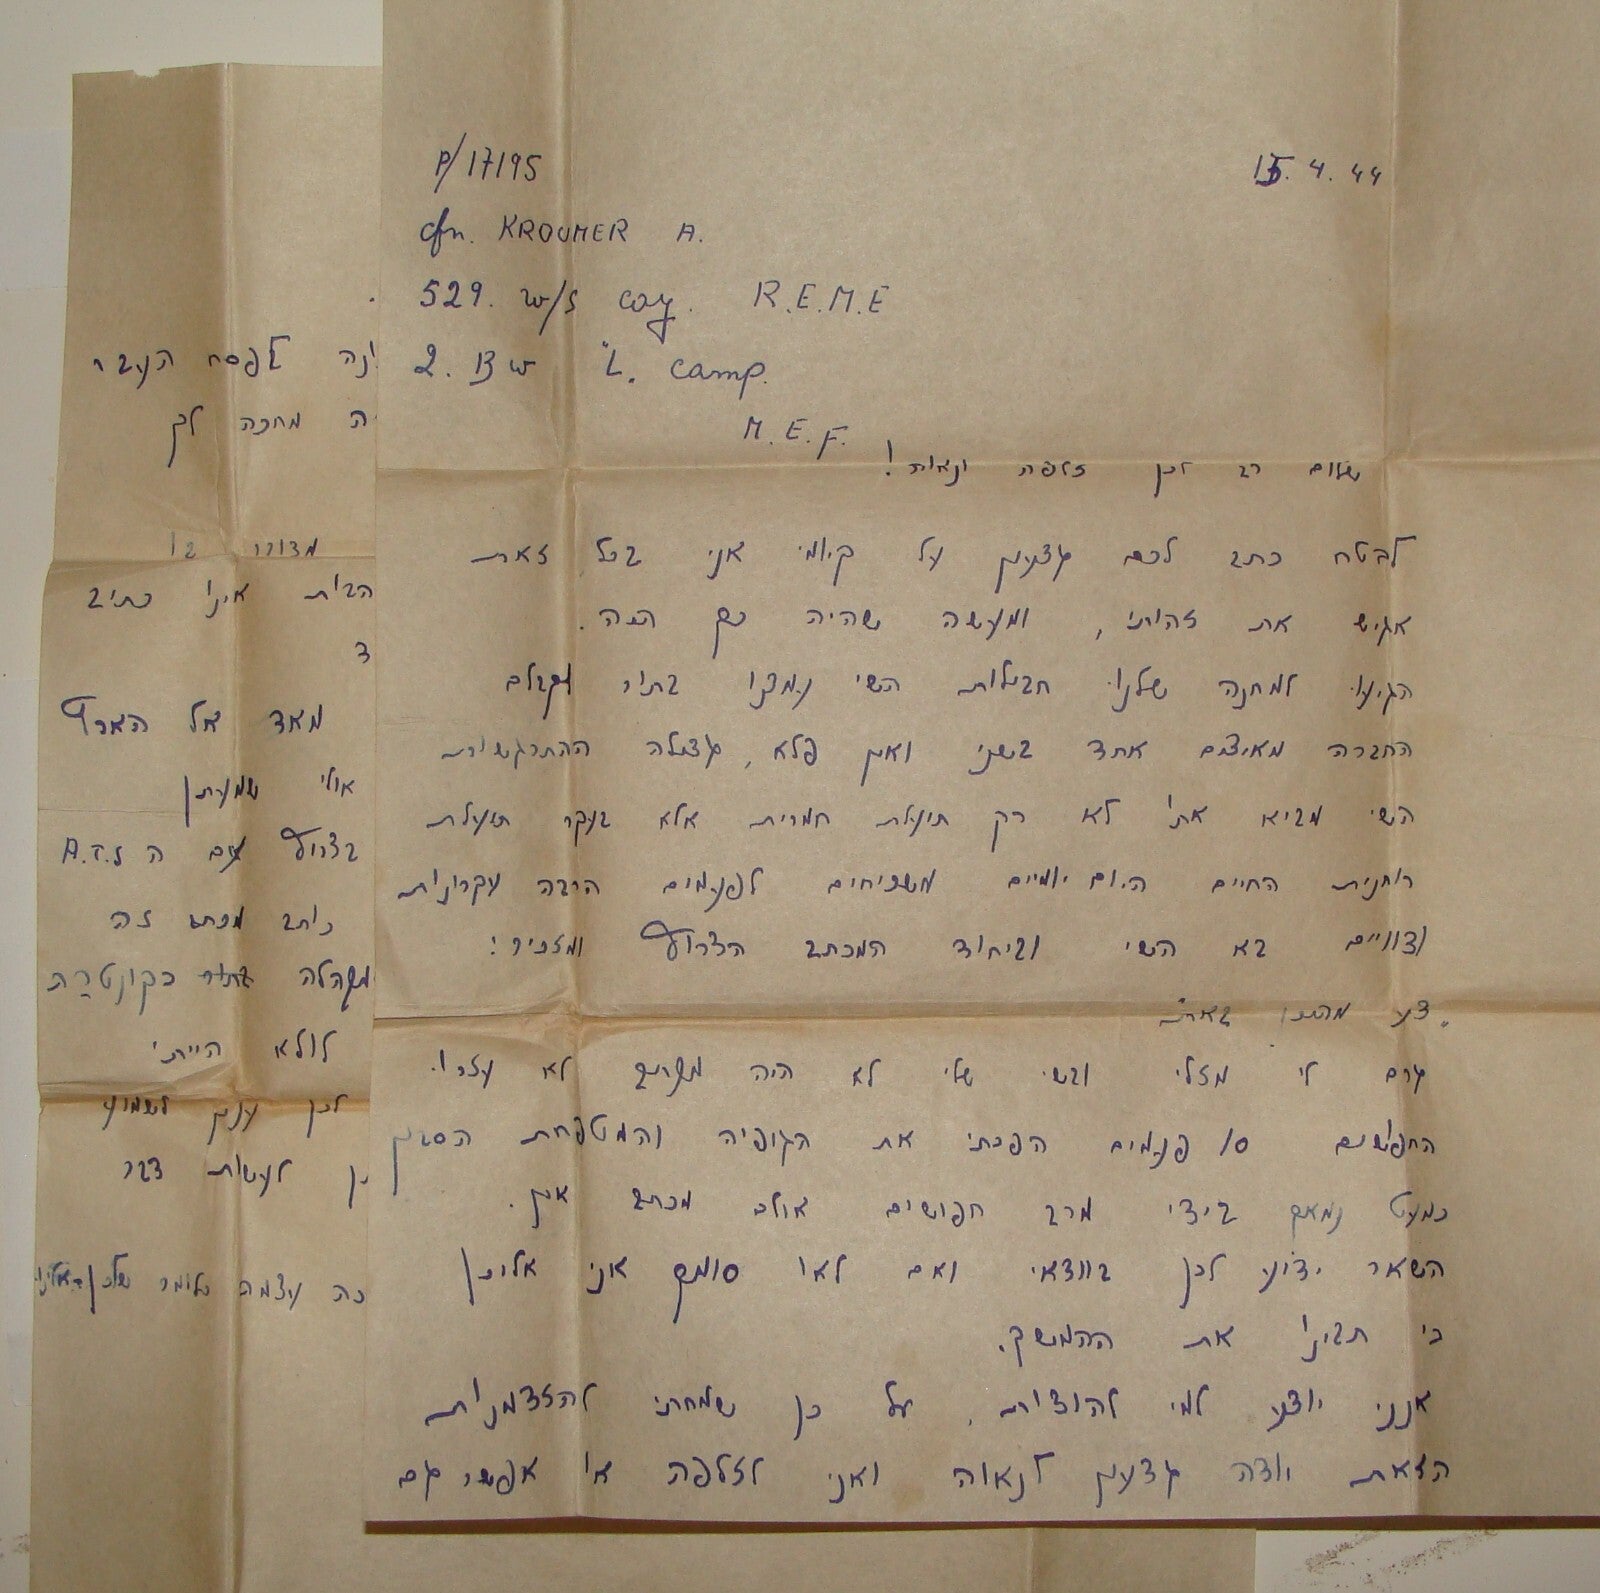 P/17195
15.4.44
Cfn. KROUMER A.
529. w/s coy. R.E.M.E
2. B w L. camp.
M.E.F.
שלום רב לכן זלפה ונאוה!
לבטח כתב לכם גדעון על קיומי אני בכל זאת
אגיש את זהותי, ומעשה שהיה כך היה.
הגיעו למחנה שלנו חבילות השי נעמדנו בתור וקבלם
החברה מאיצים אחד בשני ואין פלא, גדולה ההתרגשות
השי מביא אתו לא רק תועלת חמרית אלא בעקר תועלת
רוחנית החיים היום יומיים משכיחים לפעמים הרבה עקרונות
וצוויים בא השי וביחוד המכתב הצרוף ומזכיר:
גרם לי מזלי ובשי שלי לא היה מכתב לא עזרו
החפושים 10 פעמים הפכתי את הגופיה והמטפחת הסבון
כמעט נמאס בידי מרב חפושים אולם מכתב אין.
השאר ידוע לכן בוודאי ואם לאו סומך אני אליכן
כי תבינו את ההמשך.
אנני יודע למי להודות, על כן שמחתי להזדמנות
הזאת יודה גדעון לנאוה ואני לזלפה או אפשר גם
לפסח העבר
ה מחכה לך
הבית אינו כתוב
ד
מאד אל הארץ
אולי שמעתן
בצרוף עם ה A.T.S
כותב מכתב זה
מקהלה בתור כקונטרַת
לולא הייתי
לכן ענין לשמוע
לעשות דבר
כה עצמה כלומר שלכן